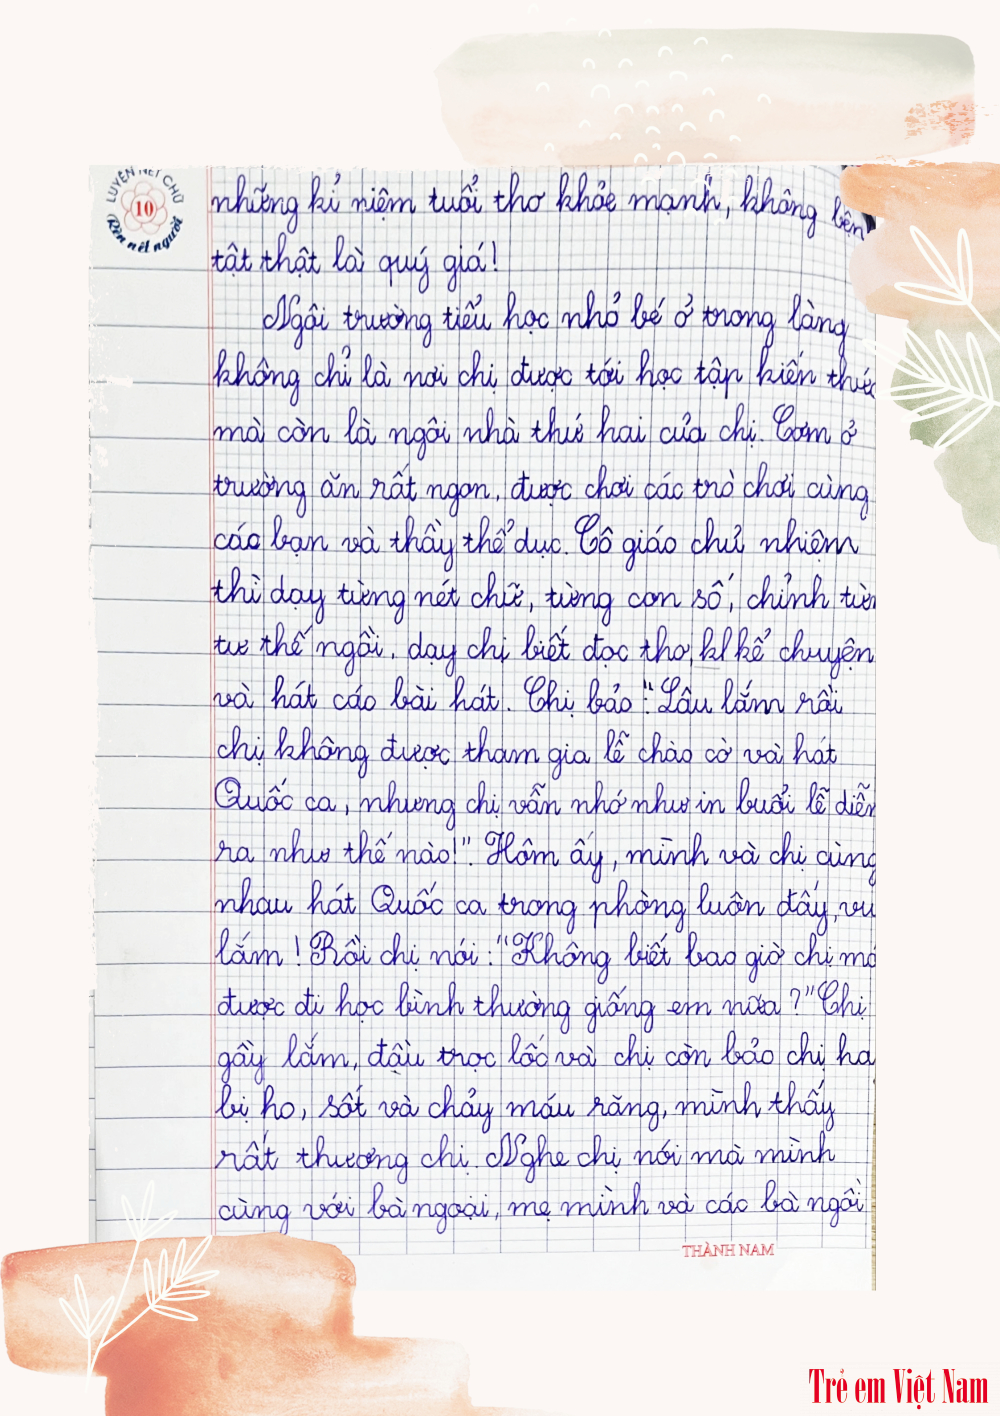 LUYỆN NÉT CHỮ
10
Rèn nết người
những kỉ niệm tuổi thơ khỏe mạnh, không bện
tật thật là quý giá!
Ngôi trường tiểu học nhỏ bé ở trong làng
không chỉ là nơi chị được tới học tập kiến thức
mà còn là ngôi nhà thứ hai của chị. Cơm ở
trường ăn rất ngon, được chơi các trò chơi cùng
các bạn và thầy thể dục. Cô giáo chủ nhiệm
thì dạy từng nét chữ, từng con số, chỉnh từn
tư thế ngồi, dạy chị biết đọc thơ, kl kể chuyện
và hát các bài hát. Chị bảo: "Lâu lắm rồi
chị không được tham gia lễ chào cờ và hát
Quốc ca, nhưng chị vẫn nhớ như in buổi lễ diễn
ra như thế nào!". Hôm ấy, mình và chị cùng
nhau hát Quốc ca trong phòng luôn đấy, vu
lắm! Rồi chị nói: "Không biết bao giờ chị mớ
được đi học bình thường giống em nữa?" Chị
gầy lắm, đầu trọc lốc và chị còn bảo chị ha
bị ho, sốt và chảy máu răng, mình thấy
rất thương chị. Nghe chị nói mà mình
cùng với bà ngoại, mẹ mình và các bà ngồi
THÀNH NAM
Trẻ em Việt Nam